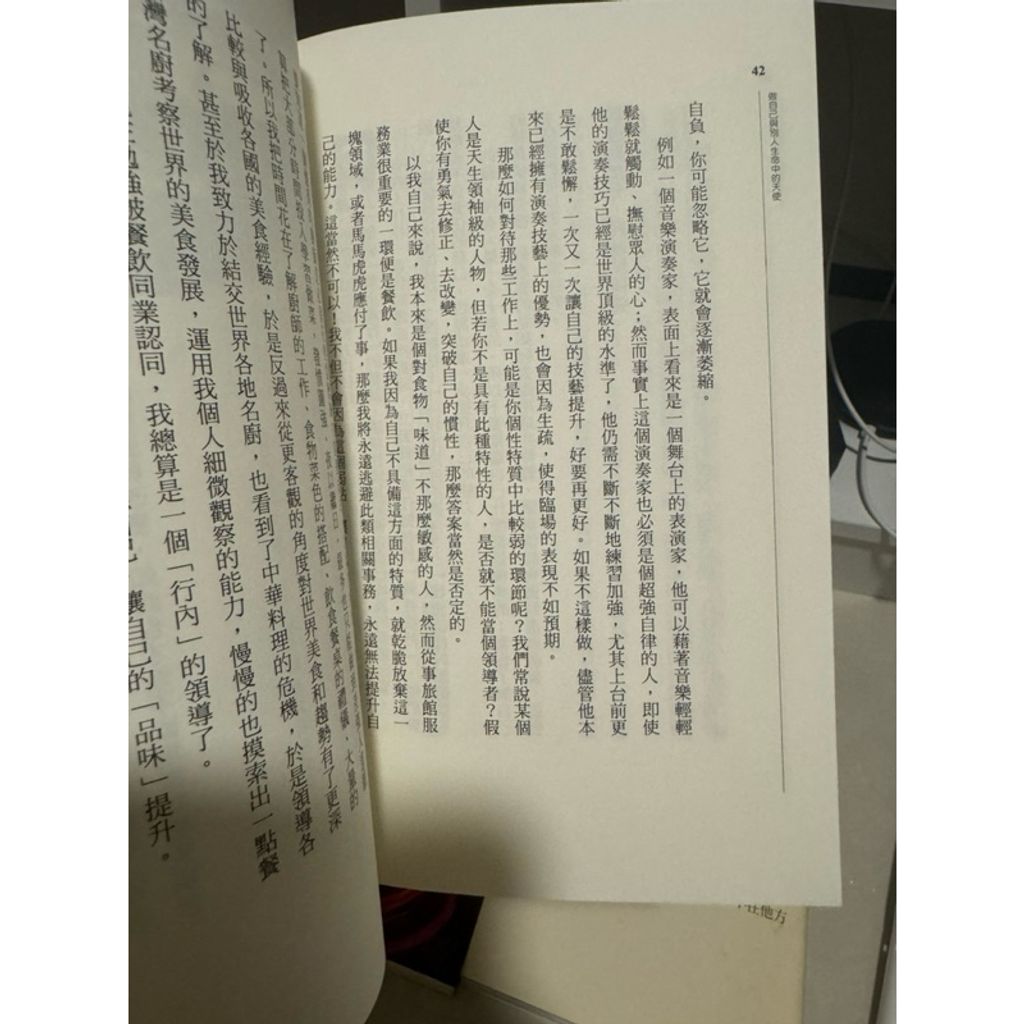 42
做自己與別人生命中的天使
自負，你可能忽略它，它就會逐漸萎縮。
例如一個音樂演奏家，表面上看來是一個舞台上的表演家，他可以藉著音樂輕輕
鬆鬆就觸動、撫慰眾人的心；然而事實上這個演奏家也必須是個超強自律的人，即使
他的演奏技巧已經是世界頂級的水準了，他仍需不斷不斷地練習加強，尤其上台前更
是不敢鬆懈，一次又一次讓自己的技藝提升，好要再更好。如果不這樣做，儘管他本
來已經擁有演奏技藝上的優勢，也會因為生疏，使得臨場的表現不如預期。
那麼如何對待那些工作上，可能是你個性特質中比較弱的環節呢？我們常說某個
人是天生領袖級的人物，但若你不是具有此種特性的人，是否就不能當個領導者？假
使你有勇氣去修正、去改變，突破自己的慣性，那麼答案當然是否定的。
以我自己來說，我本來是個對食物「味道」不那麼敏感的人，然而從事旅館服
務業很重要的一環便是餐飲。如果我因為自己不具備這方面的特質，就乾脆放棄這一
塊領域，或者馬馬虎虎應付了事，那麼我將永遠逃避此類相關事務，永遠無法提升自
己的能力。這當然不可以！我不但不會因為這個弱點
了。所以我把時間花在了解廚師的工作、食物菜色的搭配、飲食餐桌的禮儀，大量的
比較與吸收各國的美食經驗，於是反過來從更客觀的角度對世界美食和趨勢有了更深
的了解。甚至於我致力於結交世界各地名廚，也看到了中華料理的危機，於是領導各
灣名廚考察世界的美食發展，運用我個人細微觀察的能力，慢慢的也摸索出一點餐
勉強被餐飲同業認同，我總算是一個「行內」的領導了。
讓自己的「品味」提升。
在他方